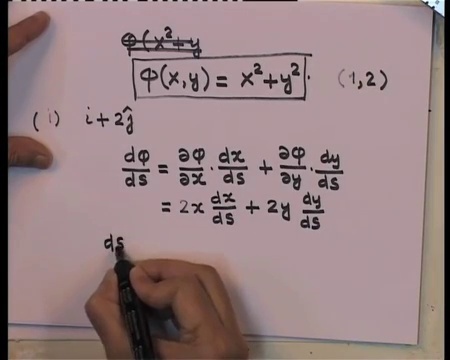 φ(x²+y
φ(x,y) = x²+y². (1,2)
(i) i+2ĵ
dφ/ds = ∂φ/∂x · dx/ds + ∂φ/∂y · dy/ds
= 2x dx/ds + 2y dy/ds
ds